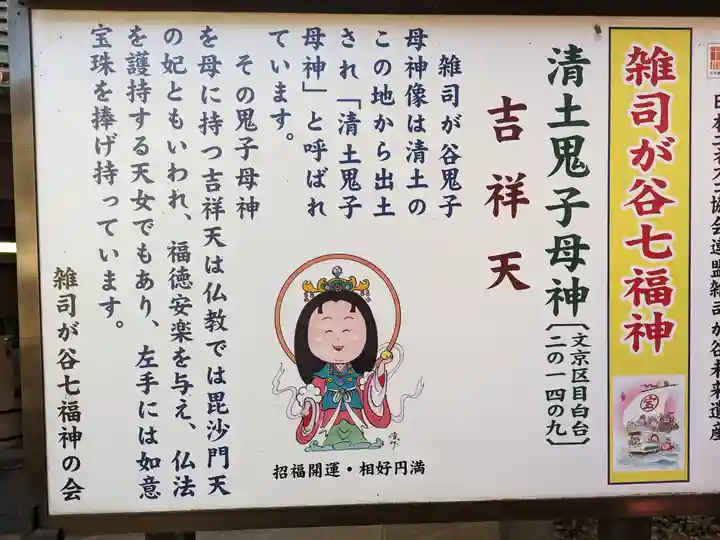 雑司が谷七福神
清土鬼子母神
〔文京区目白台
二の一四の九〕
吉祥天
雑司が谷鬼子
母神像は清土の
この地から出土
され「清土鬼子
母神」と呼ばれ
ています。
その鬼子母神
を母に持つ吉祥天は仏教では毘沙門天
の妃ともいわれ、福徳安楽を与え、仏法
を護持する天女でもあり、左手には如意
宝珠を捧げ持っています。
雑司が谷七福神の会
招福開運・相好円満
宝